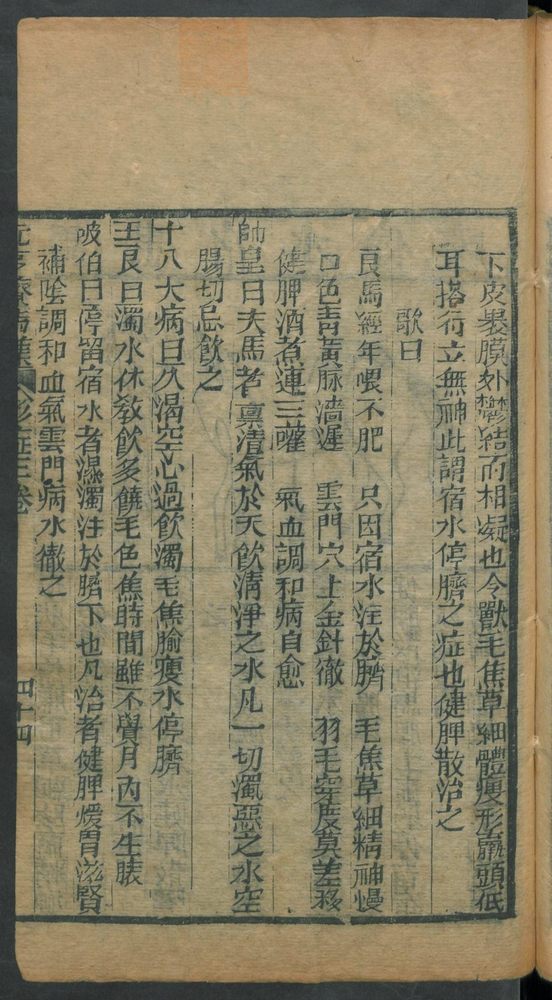 下皮裹膜外欝結而相凝也令獸毛焦草細體瘦形羸頭低
耳搭行立無神此謂宿水停臍之症也健脾散治之
歌曰
良馬經年喂不肥 只因宿水注於臍 毛焦草細精神慢
口色青黃脉濇遲 雲門穴上金針徹 羽毛穿度莫差移
健脾酒煮連三嚾 氣血調和病自愈
師皇曰夫馬者禀清氣於天飲清淨之水凡一切濁惡之水空
腸切忌飲之
十八大病曰久渴空心過飲濁毛焦腧瘦水停臍
王良曰濁水休教飲多饒毛色焦時間雖不覺月內不生膘
岐伯曰停留宿水者濕濁注於臍下也凡治者健脾煖胃滋腎
補陰調和血氣雲門病水徹之
元亨療馬集 三卷 四十四